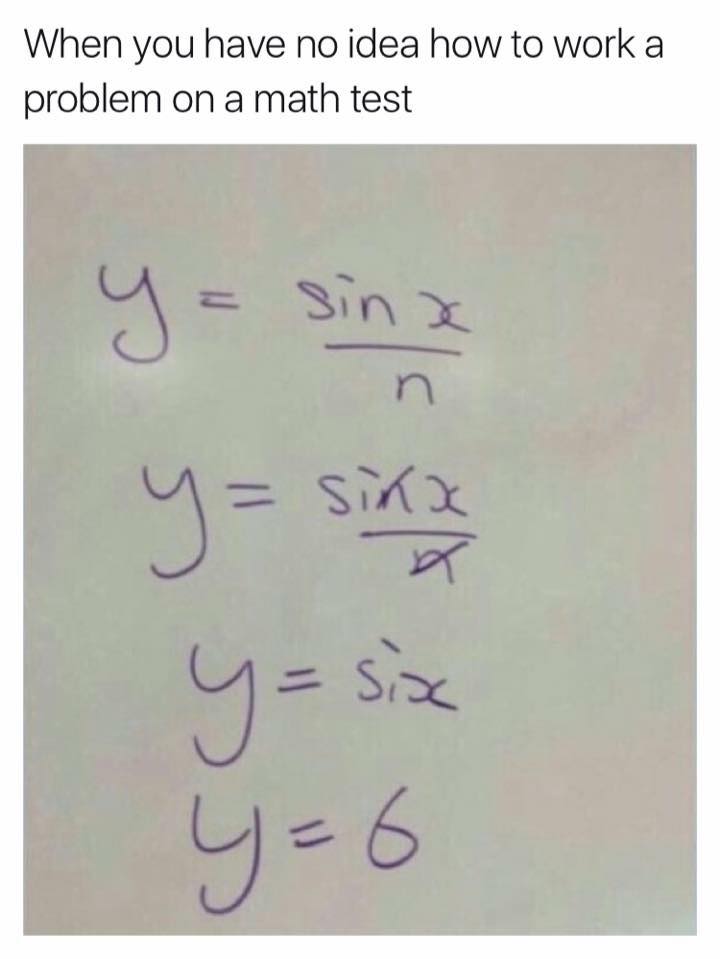 When you have no idea how to work a
problem on a math test
y = sin x
n
y = sinx
n
y = six
y = 6